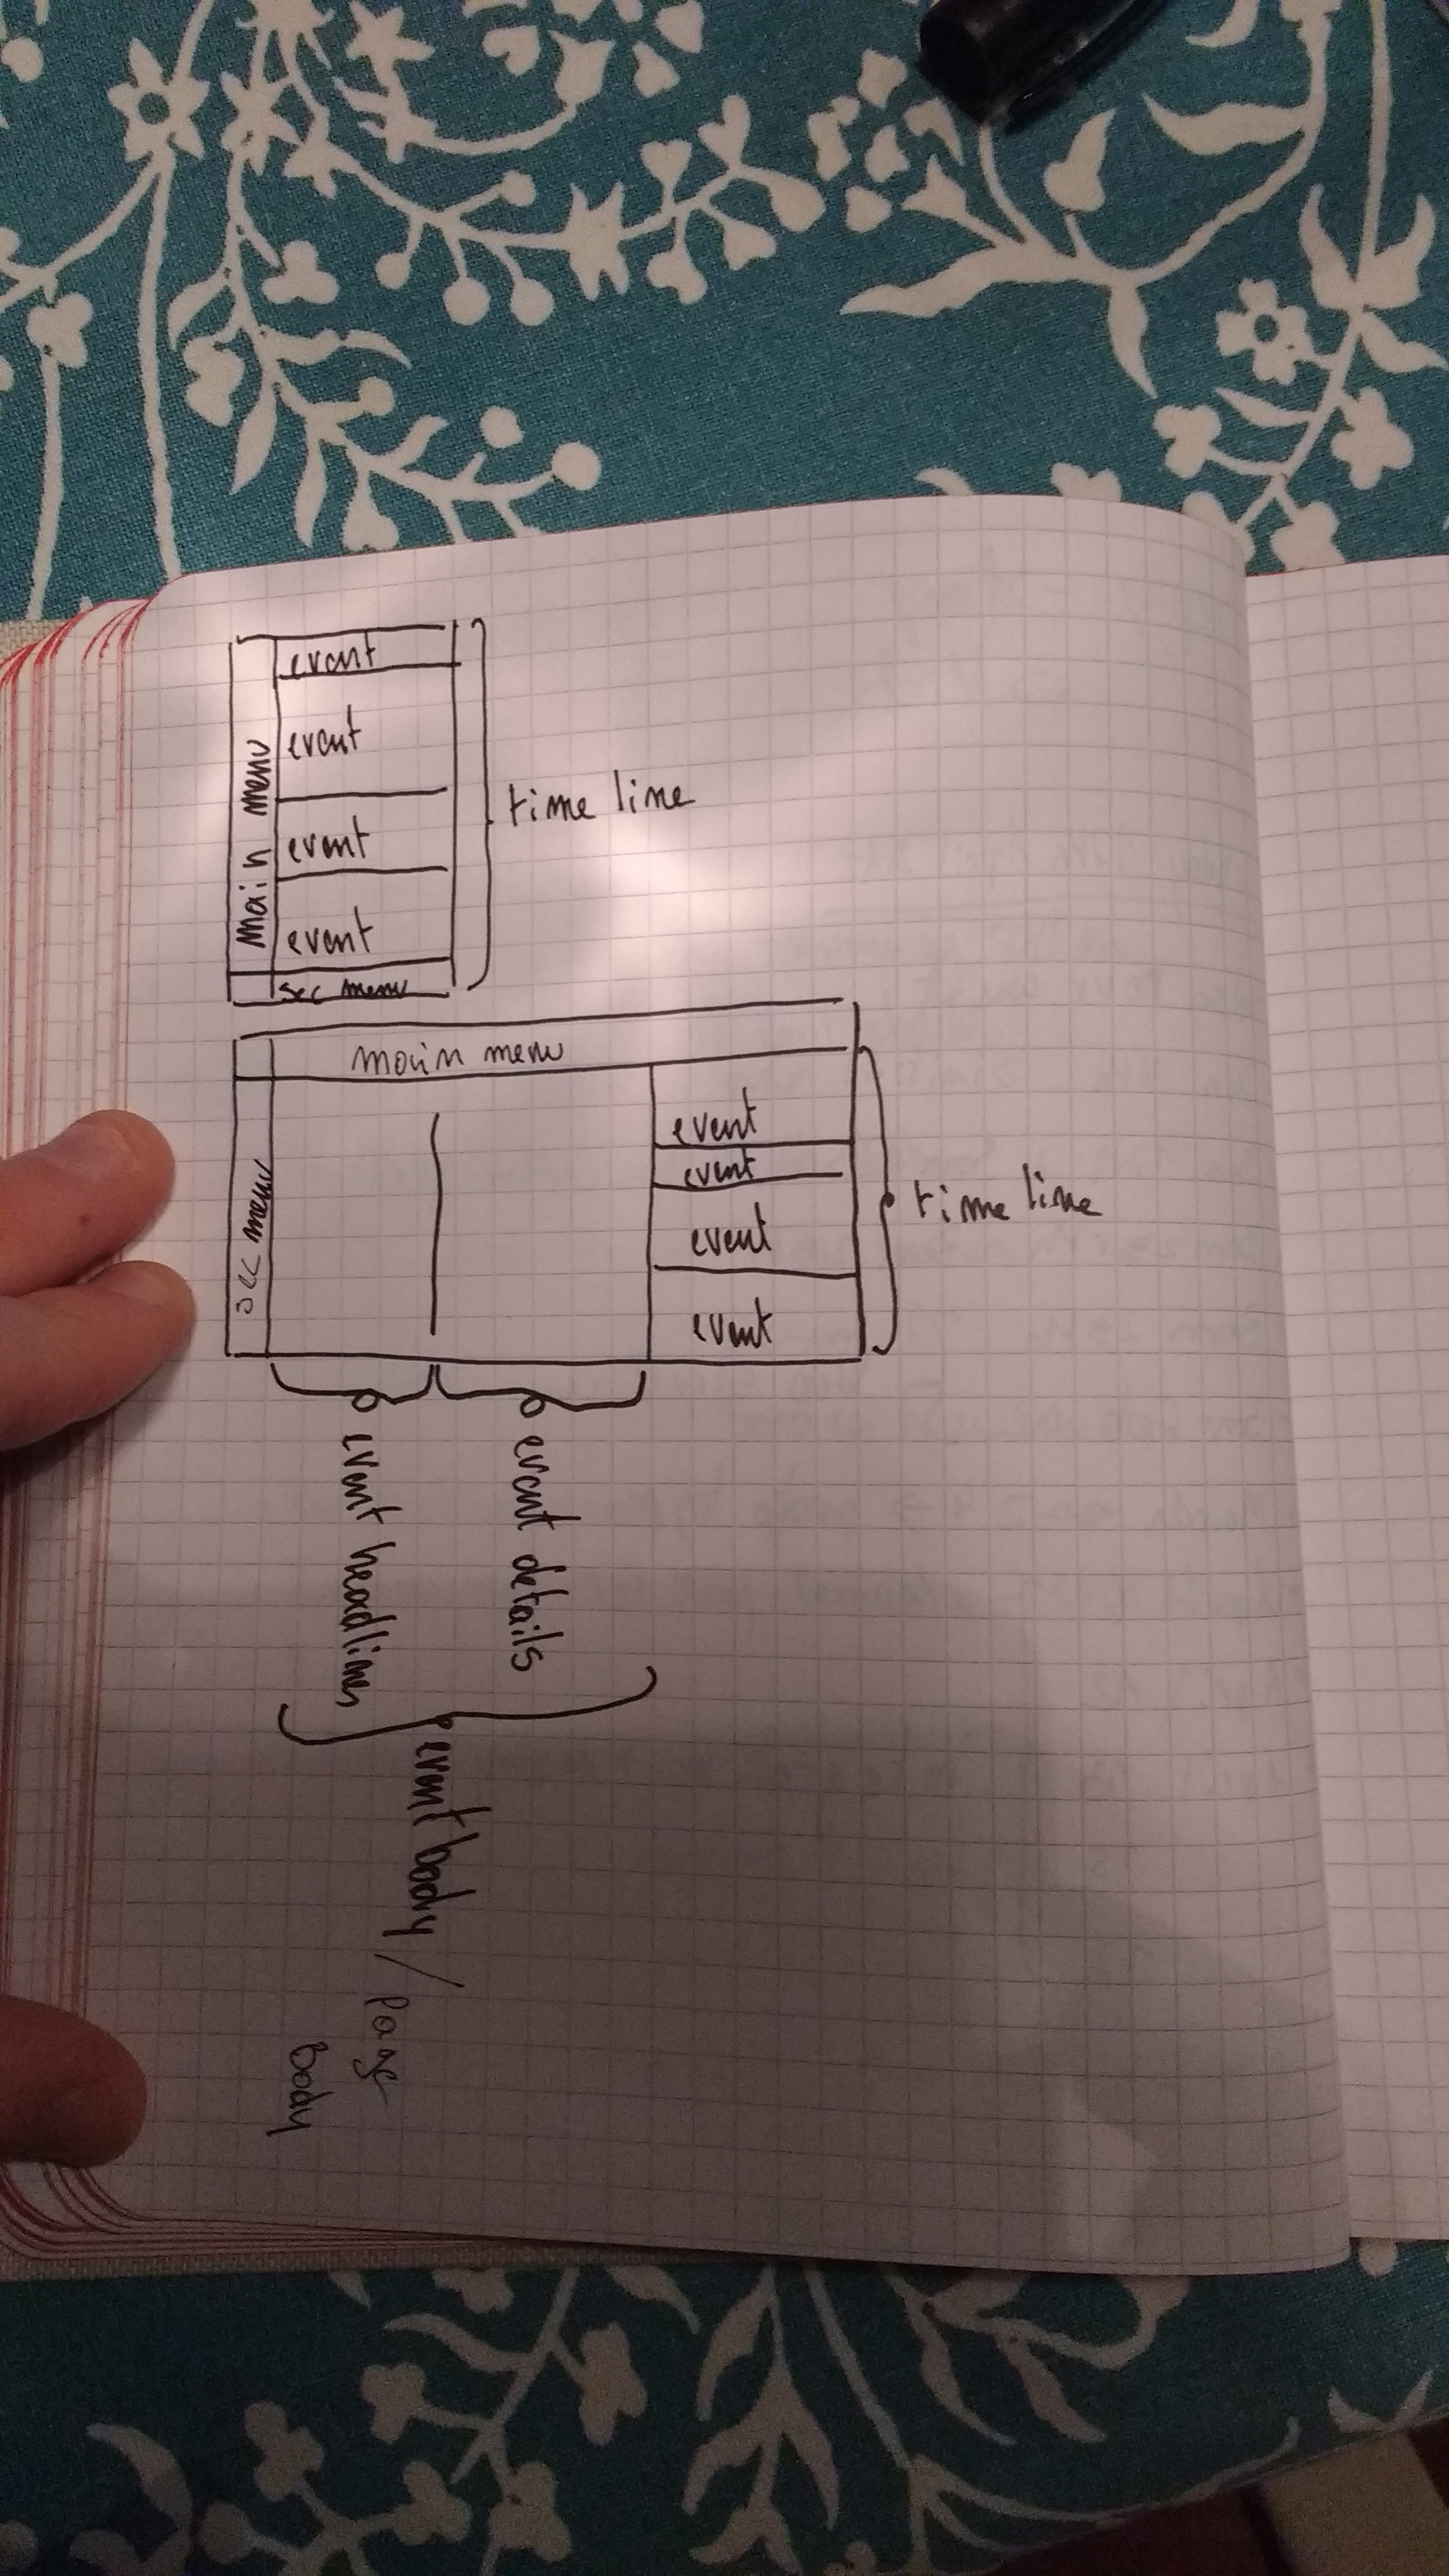 event
event
event
event
main menu
sec menu
time line
main menu
sec menu
event
event
event
event
time line
event details
event headlines
event body / page
body